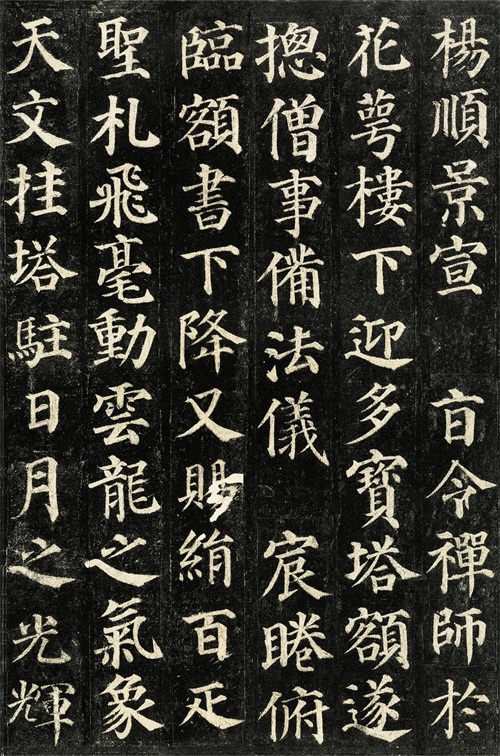 楊順景宣　㫖令禪師於
花萼樓下迎多寶塔額遂
摠僧事備法儀　宸睠俯
臨額書下降又賜絹百疋
聖札飛毫動雲龍之氣象
天文挂塔駐日月之光輝